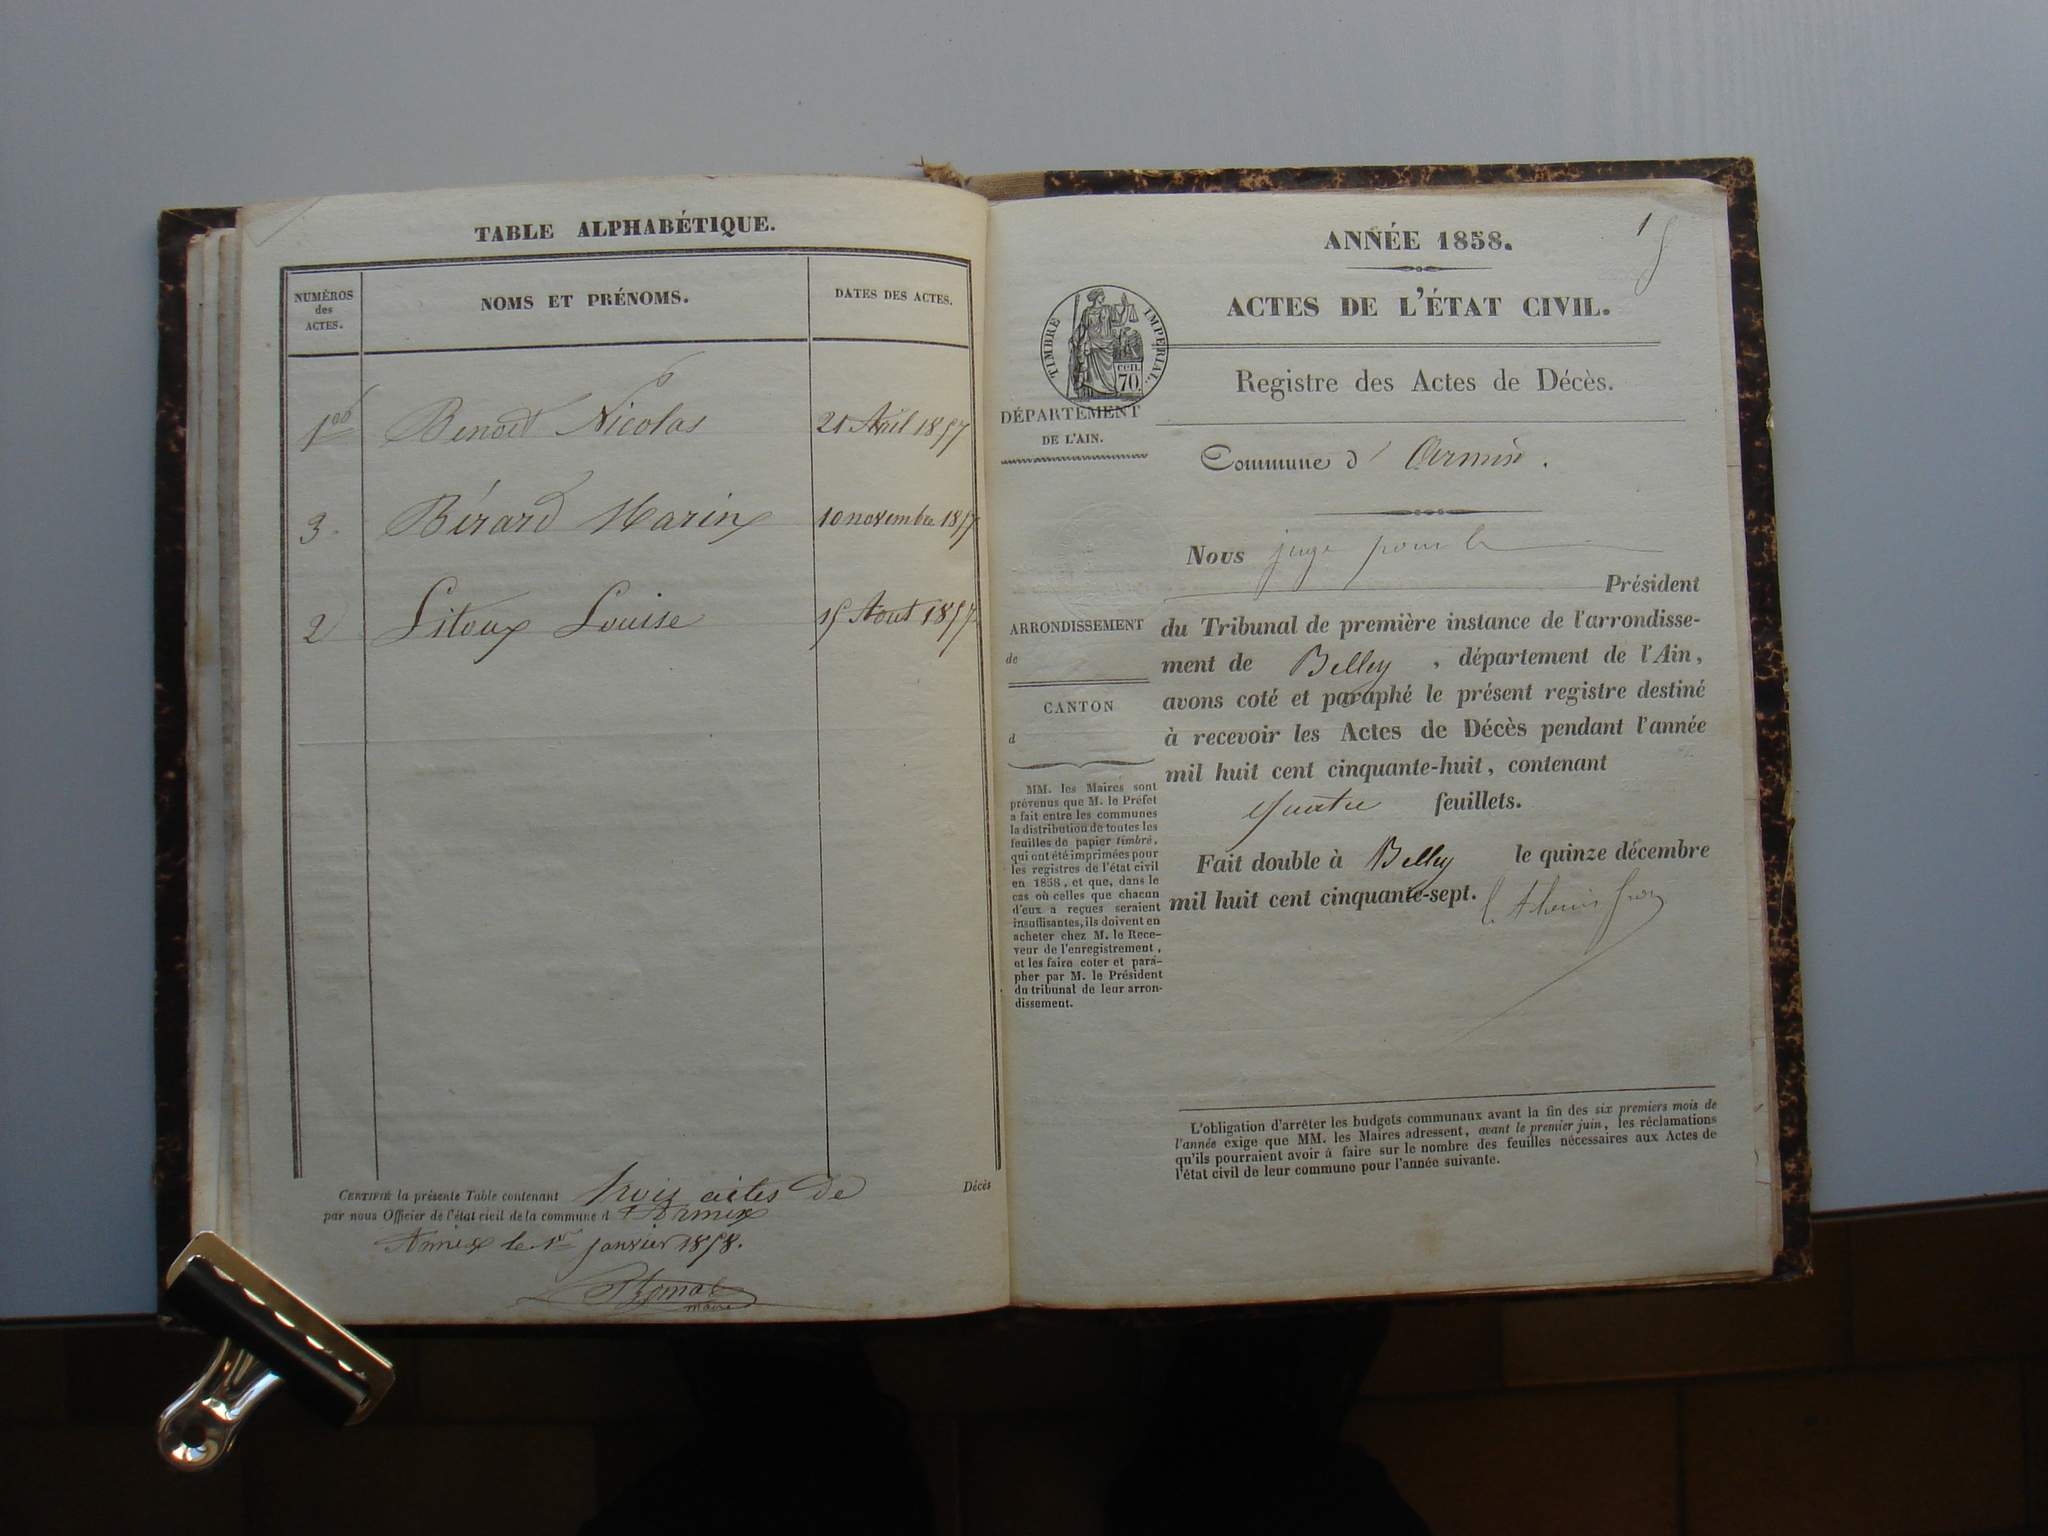 TABLE ALPHABÉTIQUE.
NUMÉROS
des
ACTES.
NOMS ET PRÉNOMS.
DATES DES ACTES.
1er Benoit Nicolas 21 Avril 1857
3. Bérard Marin 10 novembre 1857
2 Litoux Louise 15 Aout 1857
CERTIFIÉ la présente Table contenant trois actes de Décès
par nous Officier de l'état civil de la commune d'Armix
Armix le 1er janvier 1858.
maire
1
ANNÉE 1858.
ACTES DE L'ÉTAT CIVIL.
TIMBRE IMPERIAL.
70 cen.
Registre des Actes de Décès.
DÉPARTEMENT
DE L'AIN.
Commune d' Armix.
Nous juge pour le
Président
du Tribunal de première instance de l'arrondisse-
ment de Belley, département de l'Ain,
avons coté et paraphé le présent registre destiné
à recevoir les Actes de Décès pendant l'année
mil huit cent cinquante-huit, contenant
quatre feuillets.
Fait double à Belley le quinze décembre
mil huit cent cinquante-sept.
ARRONDISSEMENT
de
CANTON
d
MM. les Maires sont
prévenus que M. le Préfet
a fait entre les communes
la distribution de toutes les
feuilles de papier timbré,
qui ont été imprimées pour
les registres de l'état civil
en 1858, et que, dans le
cas où celles que chacun
d'eux a reçues seraient
insuffisantes, ils doivent en
acheter chez M. le Rece-
veur de l'enregistrement,
et les faire coter et para-
pher par M. le Président
du tribunal de leur arron-
dissement.
L'obligation d'arrêter les budgets communaux avant la fin des six premiers mois de
l'année exige que MM. les Maires adressent, avant le premier juin, les réclamations
qu'ils pourraient avoir à faire sur le nombre des feuilles nécessaires aux Actes de
l'état civil de leur commune pour l'année suivante.